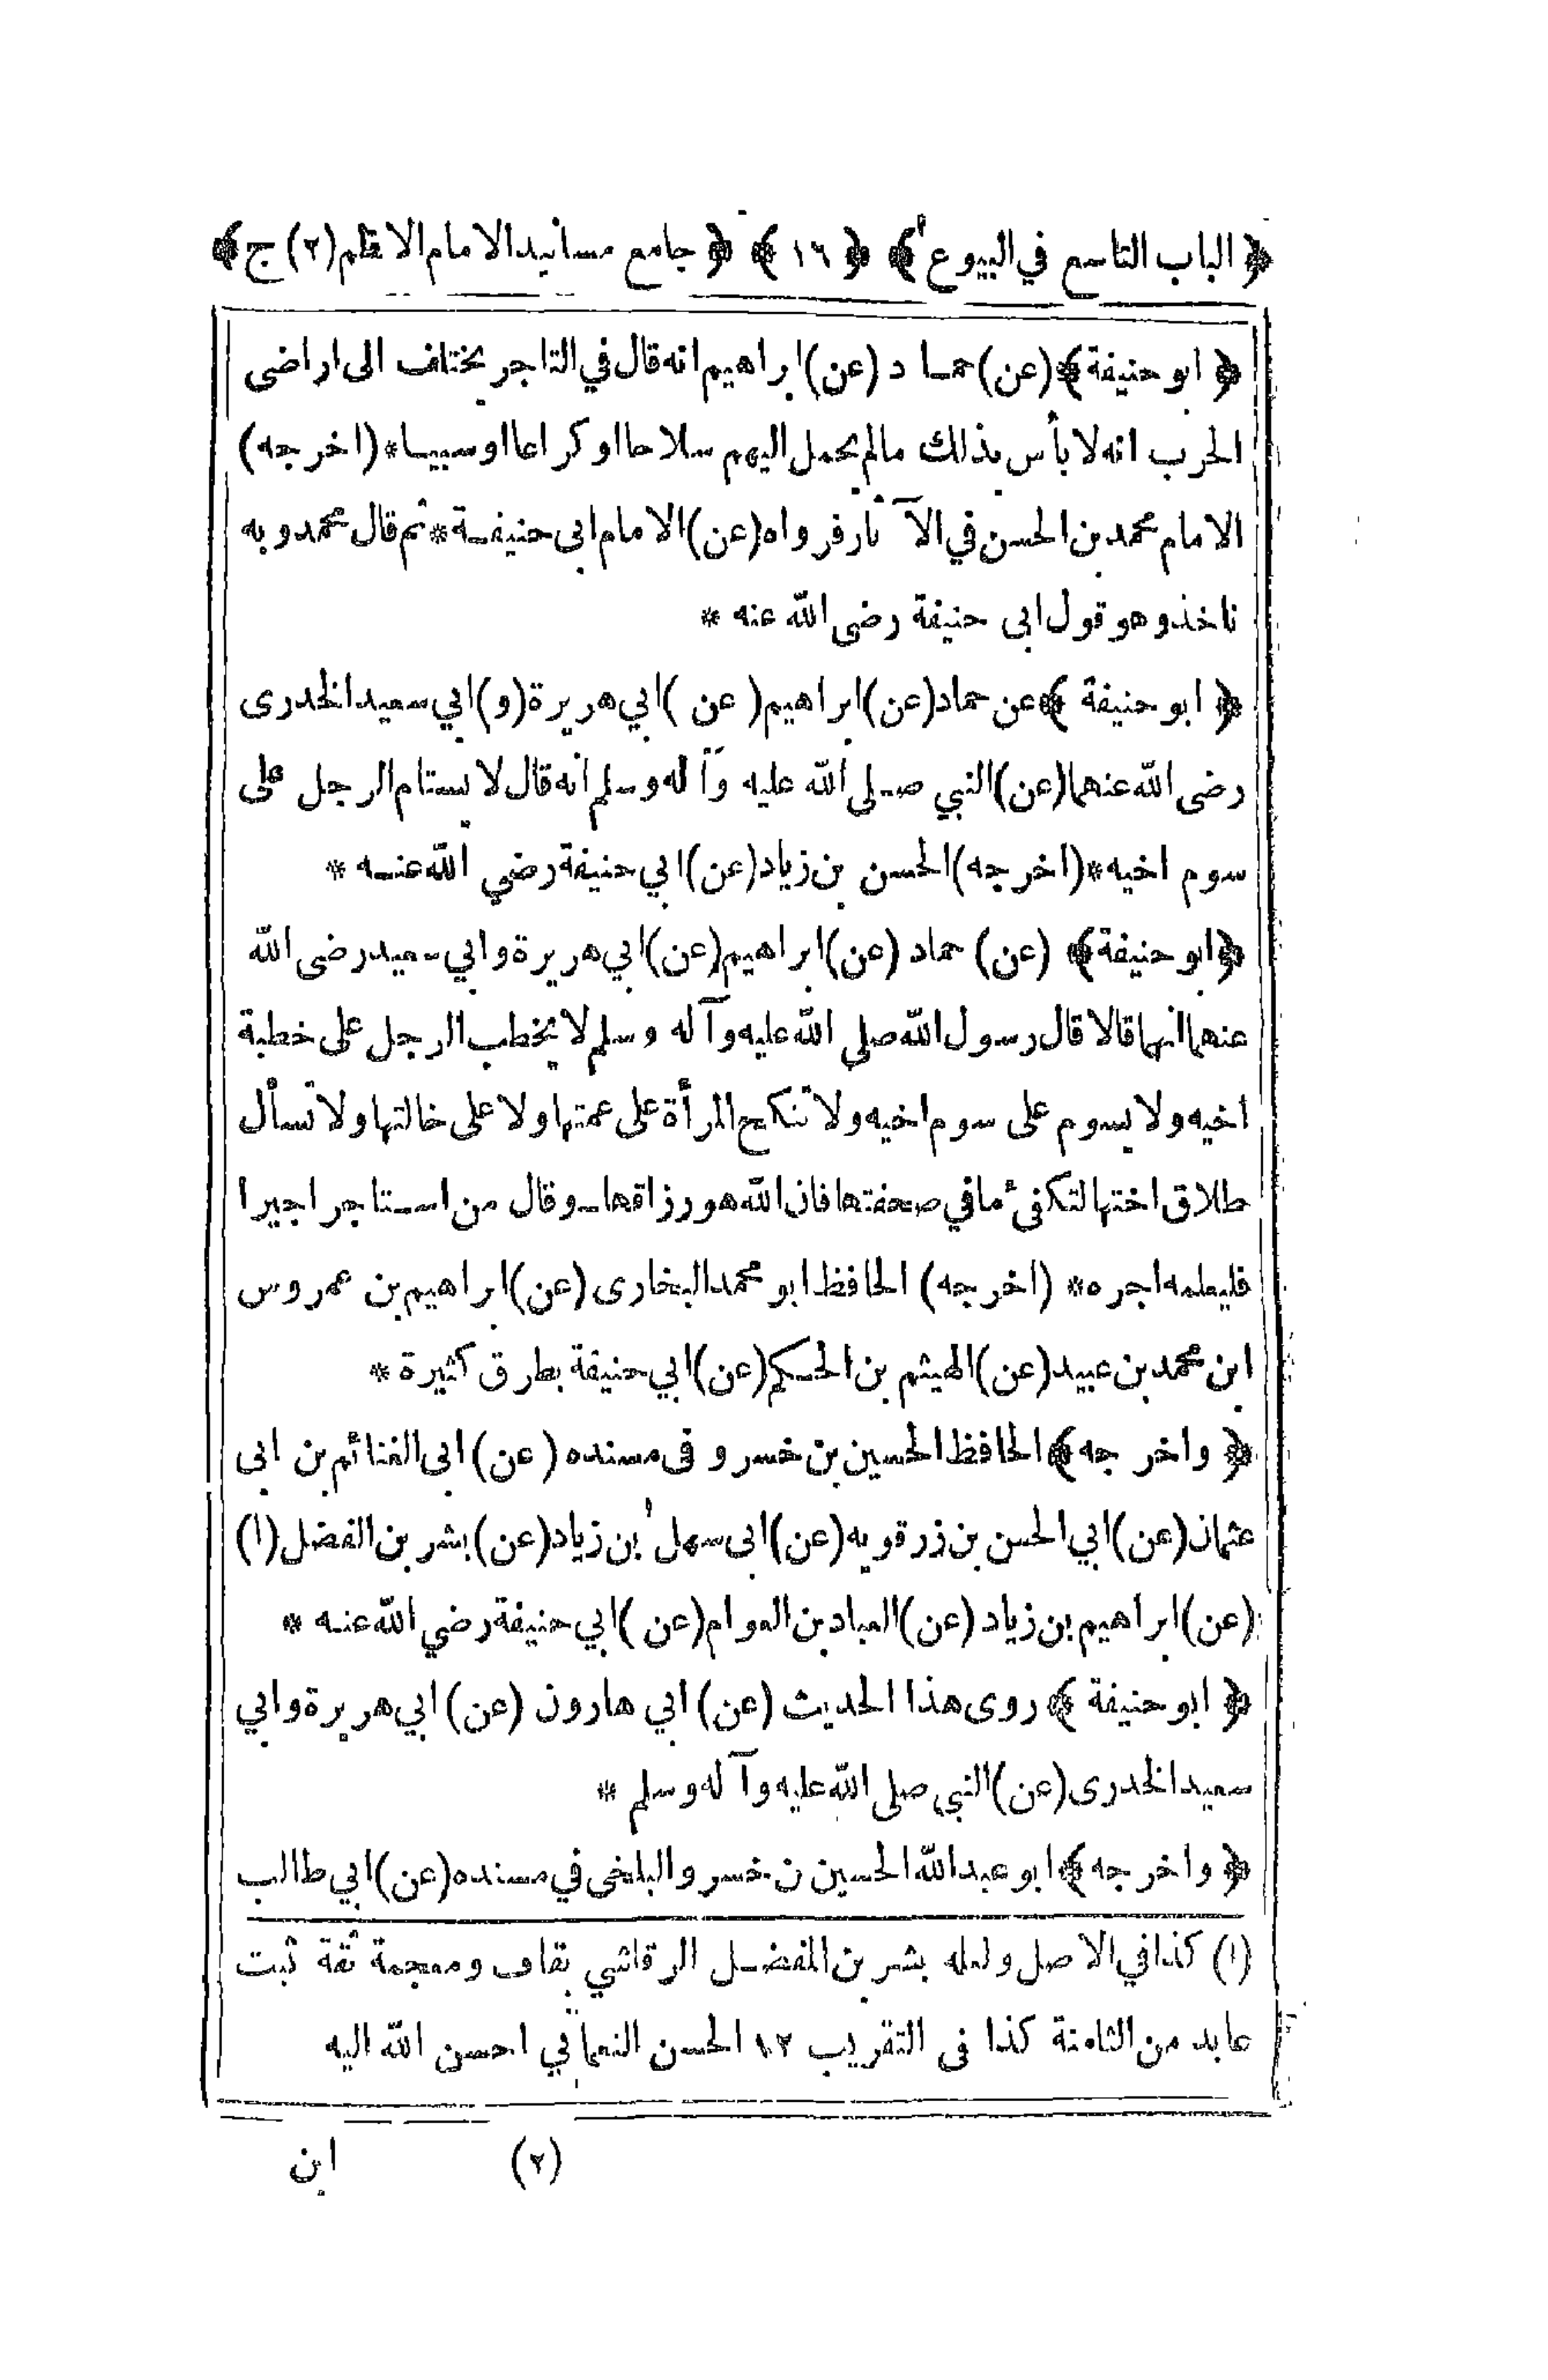 ﴿ الباب التاسع في البيوع ﴾ ﴿ ١٦ ﴾ ﴿ جامع مسانيد الامام الاعظم (٢) ج ﴾
﴿ ابو حنيفة ﴾ (عن) حماد (عن) ابراهيم انه قال في التاجر يختلف الى اراضى
الحرب انه لا بأس بذلك مالم يحمل اليهم سلاحا او كراعا او سبيا * (اخرجه)
الامام محمد بن الحسن في الآثار فرواه (عن) الامام ابى حنيفة * ثم قال محمد وبه
ناخذ وهو قول ابى حنيفة رضى الله عنه *
﴿ ابو حنيفة ﴾ عن حماد (عن) ابراهيم (عن) ابي هريرة (و) ابي سعيد الخدرى
رضى الله عنهما (عن) النبي صلى الله عليه وآله وسلم انه قال لا يستام الرجل على
سوم اخيه * (اخرجه) الحسن بن زياد (عن) ابي حنيفة رضي الله عنه *
﴿ ابو حنيفة ﴾ (عن) حماد (عن) ابراهيم (عن) ابي هريرة وابي سعيد رضى الله
عنهما انهما قالا قال رسول الله صلى الله عليه وآله وسلم لا يخطب الرجل على خطبة
اخيه ولا يسوم على سوم اخيه ولا تنكح المرأة على عمتها ولا على خالتها ولا تسأل
طلاق اختها لتكفئ ما في صحفتها فان الله هو رزاقها وقال من استاجر اجيرا
فليعلمه اجره * (اخرجه) الحافظ ابو محمد البخارى (عن) ابراهيم بن عمروس
ابن محمد بن عبيد (عن) الهيثم بن الحكم (عن) ابي حنيفة بطرق كثيرة *
﴿ واخرجه ﴾ الحافظ الحسين بن خسرو فى مسنده (عن) ابى الغنائم بن ابى
عثمان (عن) ابي الحسن بن زرقويه (عن) ابى سهل بن زياد (عن) بشر بن الفضل (١)
(عن) ابراهيم بن زياد (عن) العباد بن العوام (عن) ابي حنيفة رضي الله عنه *
﴿ ابو حنيفة ﴾ روى هذا الحديث (عن) ابي هارون (عن) ابي هريرة وابي
سعيد الخدرى (عن) النبي صلى الله عليه وآله وسلم *
﴿ واخرجه ﴾ ابو عبد الله الحسين بن خسرو البلخى في مسنده (عن) ابي طالب
(١) كذا في الاصل ولعله بشر بن المفضل الرقاشي بقاف ومعجمة ثقة ثبت
عابد من الثامنة كذا فى التقريب ١٢ الحسن النعماني احسن الله اليه
(٢) ابن